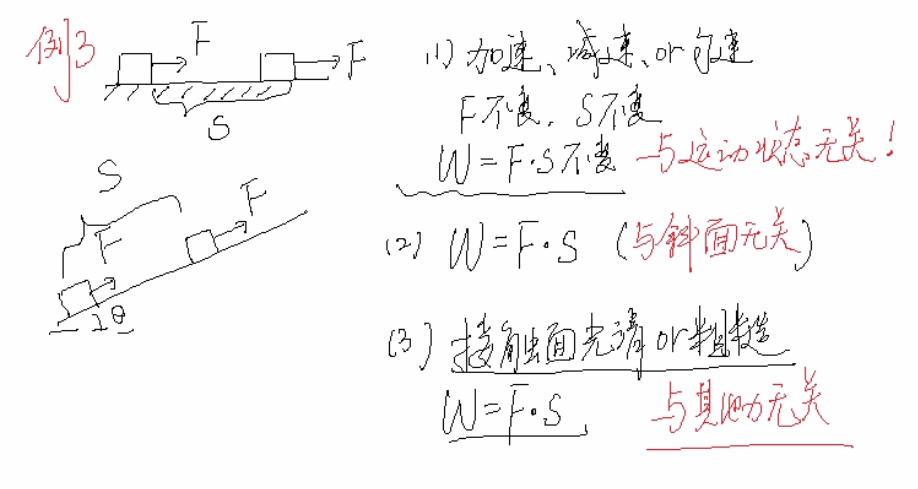 例3
F
F
S
S
F
F
θ
(1) 加速、减速、or 匀速
F不变，S不变
W=F·S不变 —与运动状态无关！
(2) W=F·S (与斜面无关)
(3) 接触面光滑or粗糙
W=F·S 与其他力无关